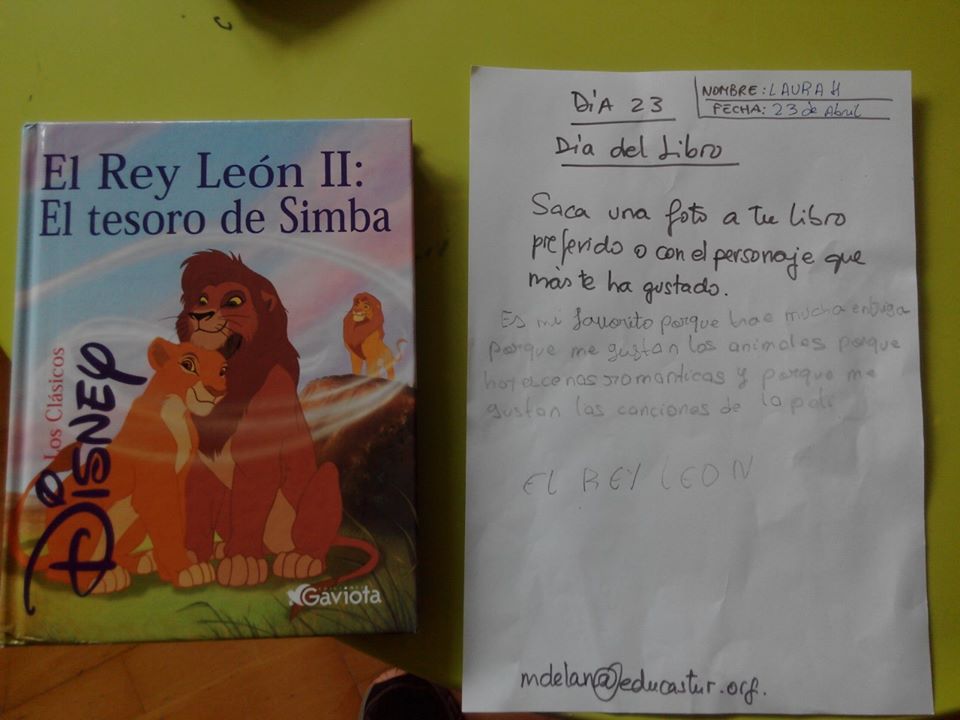 El Rey León II:
El tesoro de Simba
Los Clásicos
DISNEY
EDICIONES
Gaviota
DÍA 23
NOMBRE: LAURA H
FECHA: 23 de Abril
Día del Libro
Saca una foto a tu libro
preferido o con el personaje que
más te ha gustado.
Es mi favorito porque trae mucha
porque me gustan los animales porque
hay escenas romanticas y porque me
gustan las canciones de la peli.
EL REY LEON
mdelan@educastur.org.